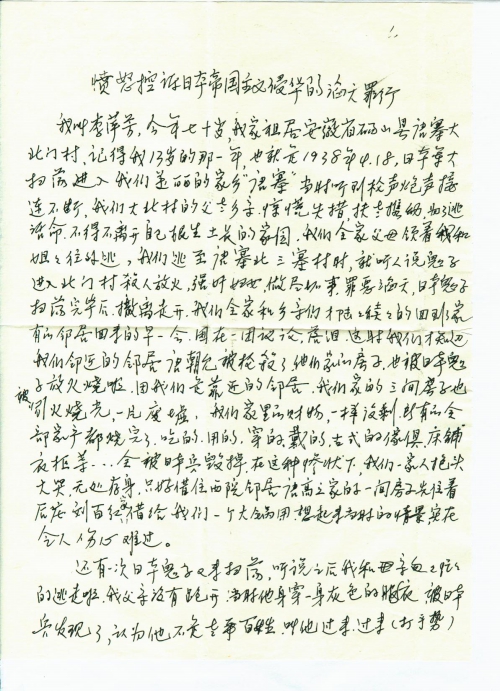 愤怒控诉日本帝国主义侵华的滔天罪行
我叫李萍芳，今年七十岁，我家祖居安徽省砀山县唐寨大
北门村，记得我13岁的那一年，也就是1938年4.18，日本军大
扫荡进入我们美丽的家乡"唐寨"当时听到枪声炮声接
连不断，我们大北村的父老乡亲，惊慌失措，扶老携幼为了逃
活命，不得不离开自己土生土长的家园，我们全家父母领着我和
姐姐往外逃，我们逃至唐寨北三寨村时，就听人说鬼子
进入北门村杀人放火，强奸妇女，做尽坏事，罪恶滔天，日本鬼子
扫荡完毕后，撤离走开，我们全家和乡亲们才陆续的回到家
有的邻居回来的早一会，围在一团议论，落泪，这时我们才知道
我们邻近的邻居唐朝允被枪杀了他们家的房子，也被日本鬼
子放火烧啦，因我们是靠近的邻居，我们家的三间房子也
被引火烧光，一片废墟，我们家里的财物，一样没剩，所有的全
部家产都烧完了，吃的，用的，穿的，戴的，古式的傢俱，床铺
衣柜等…全被日本兵毁掉，在这种惨状下，我们一家人抱头
大哭，无处存身，只好借住西院邻居唐高立家的一间房子先住着
后庄刘百 借给我们一个大锅用，想起来当时的情景实在
令人伤心难过。
还有一次日本鬼子又来扫荡，听说之后我和母亲
的逃走啦，我父亲没有跑开，当时他身穿一身灰色的 衣，被日本
兵发现了，认为他不是老百姓，叫他过来，过来（打手势）